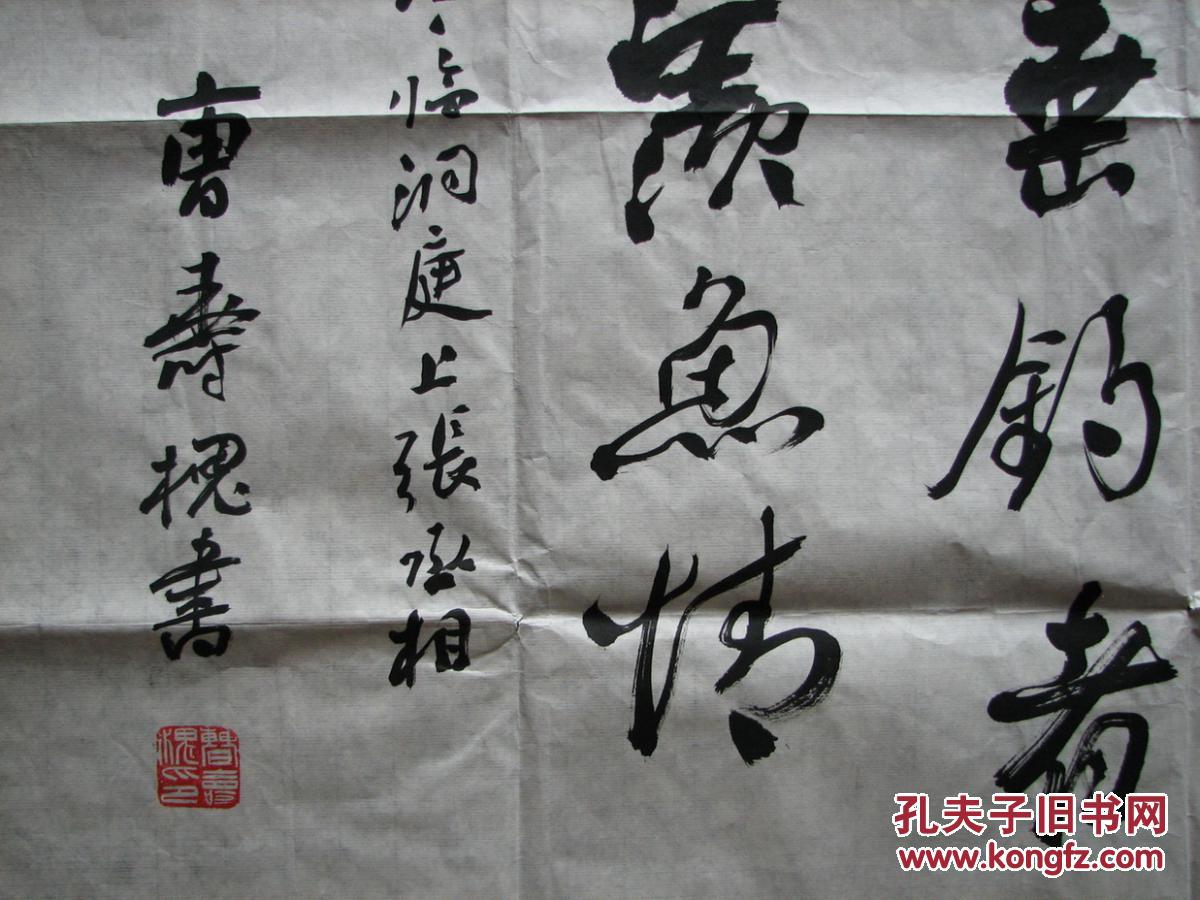 垂钓者
羡魚情
臨洞庭上張丞相
曹壽槐書
曹壽槐印
孔夫子旧书网
www.kongfz.com